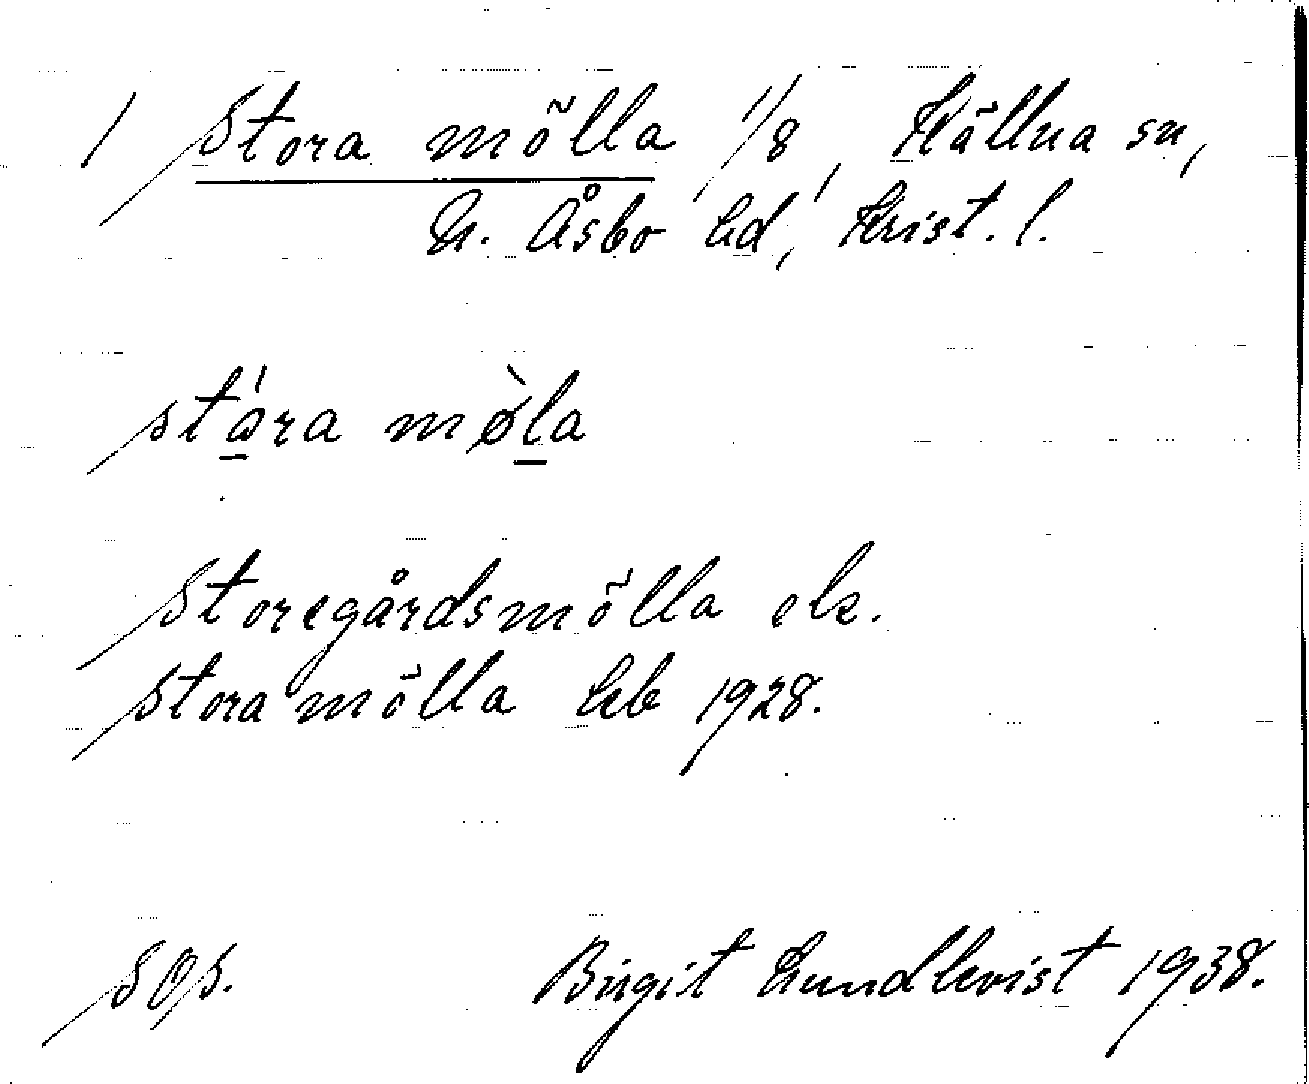 / Stora mölla 1/8, Källna sn,
N. Åsbo hd, Krist. l.
stára mø̀la
Storegårdsmölla ele.
Stora mölla hb 1928.
sös.
Birgit Lundkvist 1938.